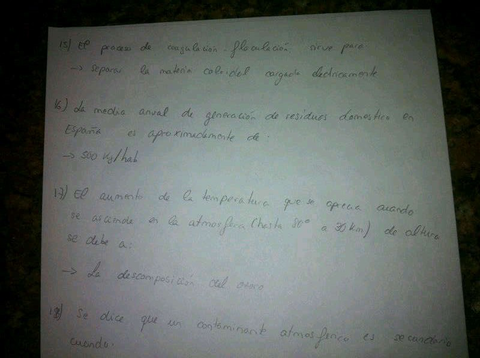 15) El proceso de coagulación-floculación sirve para
→ separar la materia coloidal cargada electricamente
16) La media anual de generación de residuos domestico en
España es aproximadamente de:
→ 500 Kg/hab
17) El aumento de la temperatura que se aprecia cuando
se asciende en la atmosfera (hasta 50º a 30 km) de altura
se debe a:
→ La descomposición del ozono
18) Se dice que un contaminante atmosferico es secundario
cuando: